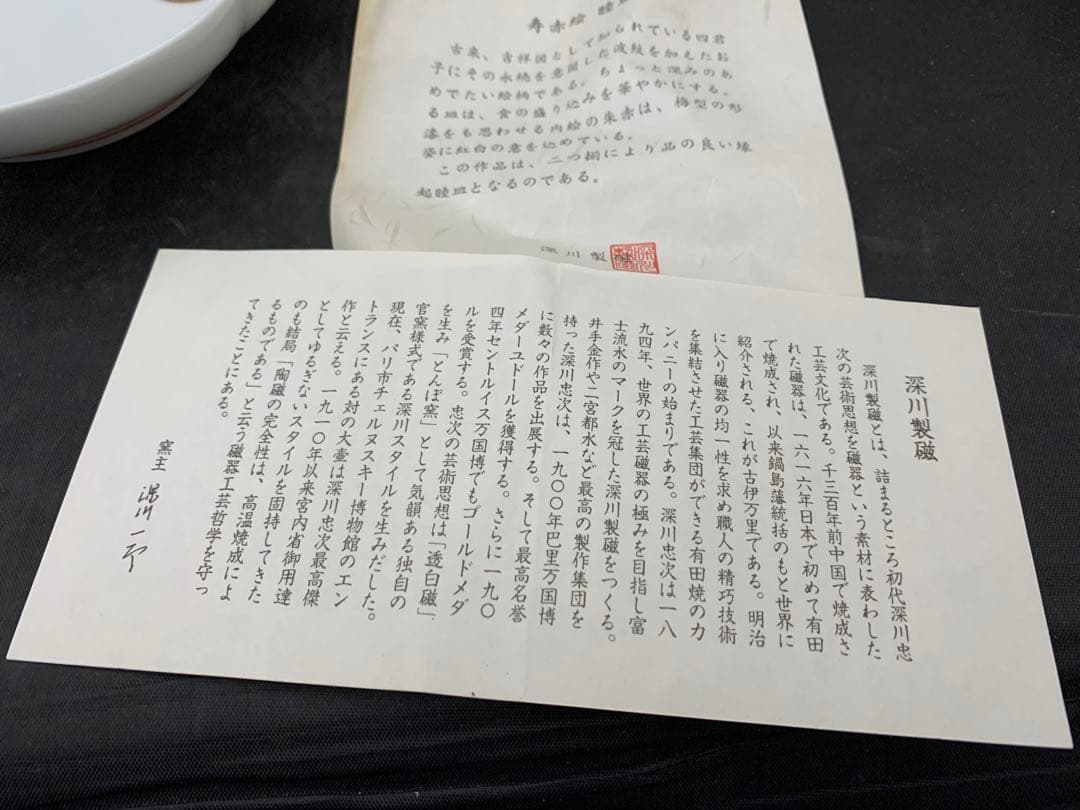 寿赤絵 睦皿
古来、吉祥図として知られている四君
子にその永続を意図した波紋を加えたお
めでたい絵柄である。ちょっと深みのあ
る皿は、食の盛り込みを華やかにする。
漆をも思わせる内絵の朱赤は、梅型の形
姿に紅白の意を込めている。
この作品は、二つ揃により品の良い縁
起睦皿となるのである。
深川製磁
深川製磁
深川製磁とは、詰まるところ初代深川忠
次の芸術思想を磁器という素材に表わした
工芸文化である。千三百年前中国で焼成さ
れた磁器は、一六一六年日本で初めて有田
で焼成され、以来鍋島藩統括のもと世界に
紹介される、これが古伊万里である。明治
に入り磁器の均一性を求め職人の精巧技術
を集結させた工芸集団ができる有田焼のカ
ンパニーの始まりである。深川忠次は一八
九四年、世界の工芸磁器の極みを目指し富
士流水のマークを冠した深川製磁をつくる。
井手金作や二宮都水など最高の製作集団を
持った深川忠次は、一九〇〇年巴里万国博
に数々の作品を出展する。そして最高名誉
メダーユドールを獲得する。さらに一九〇
四年セントルイス万国博でもゴールドメダ
ルを受賞する。忠次の芸術思想は「透白磁」
を生み「とんぼ窯」として気韻ある独自の
官窯様式である深川スタイルを生みだした。
現在、パリ市チェルヌスキー博物館のエン
トランスにある対の大壷は深川忠次最高傑
作と云える。一九一〇年以来宮内省御用達
としてゆるぎないスタイルを固持してきた
のも結局「陶磁の完全性は、高温焼成によ
るものである」と云う磁器工芸哲学を守っ
てきたことにある。
窯主 深川